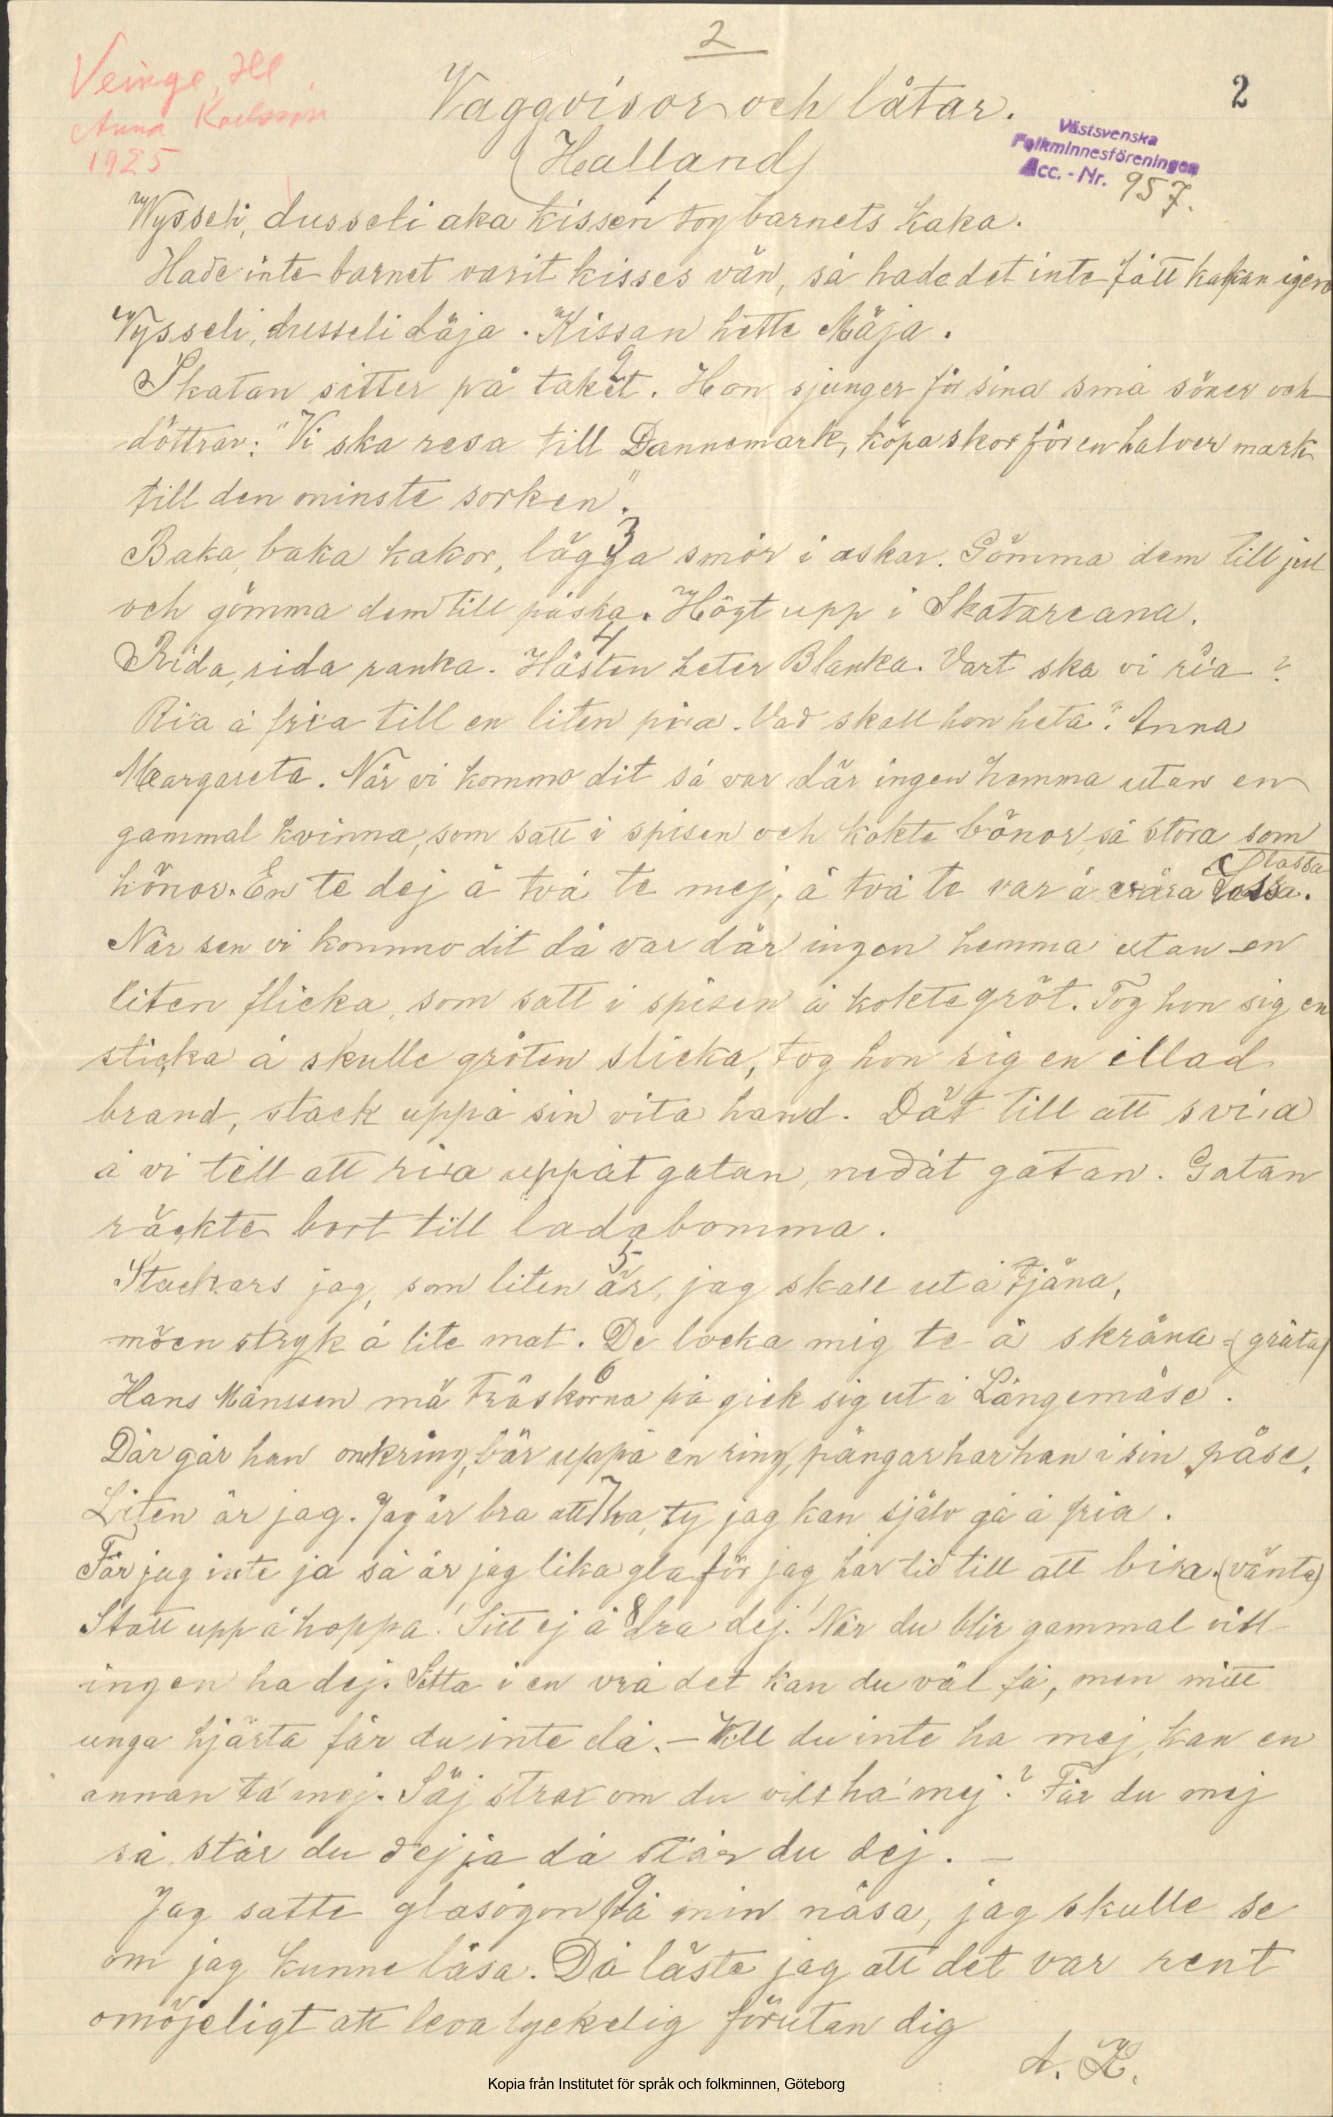 2
2
Veinge, Hll
Anna Karlsson
1925
Vaggvisor och låtar.
(Halland)
Västsvenska
Folkminnesföreningen
Acc. - Nr. 957.
1
Wysseli, dusseli aka kissen tog barnets kaka.
Hade inte barnet varit kisses vän, så hade det inte fått kakan igen
Vysseli, dusseli däja. Kissan hette Mäja.
2
Skatan sitter på taket. Hon sjunger för sina små söner och
döttrar: "Vi ska resa till Dannemark, köpa skor för en halver mark
till den minste sorken".
3
Baka, baka kakor, lägga smör i askar. Gömma dem till jul
och gömma dem till påska. Högt upp i Skatareana.
4
Rida, rida ranka. Hästen heter Blanka. Vart ska vi ria?
Ria å fria till en liten pia. Vad skall hon heta? Anna
Margareta. När vi kommo dit så var där ingen hemma utan en
gammal kvinna, som satt i spisen och kokte bönor, så stora som
hönor. En te dej å två te mej, å två te var å våra
Plassa
När sen vi kommo dit då var där ingen hemma utan en
liten flicka, som satt i spisen å kokte gröt. Tog hon sig en
sticka å skulle gröten slicka, tog hon sig en illad
brand, stack uppå sin vita hand. Dåt till att svia
å vi till att ria uppåt gatan, nedåt gatan. Gatan
räckte bort till ladabomma.
5
Stackars jag, som liten är, jag skall ut å tjäna,
möen stryk å lite mat. De locka mig te å skräna = (gråta)
6
Hans Månsson mä träskorna på gick sig ut i Långemåse.
Där går han omkring, bär uppå en ring, pängar har han i sin påse.
7
Liten är jag. Jag är bra att ha, ty jag kan själv gå å fria.
Får jag inte ja så är jag lika gla för jag har tid till att bia. (vänta)
8
Statt upp å hoppa! Sitt ej å dra dej! När du blir gammal vill
ingen ha dej. Sitta i en vrå det kan du väl få, men mitt
unga hjärta får du inte då. – Vill du inte ha mej, kan en
annan ta mej. Säj strax om du vill ha mej? Får du mej
så står du dej ja då står du dej. –
9
Jag satte glasögon på min näsa, jag skulle se
om jag kunne läsa. Då läste jag att det var rent
omöjeligt att leva lyckelig förutan dig
A. K.
Kopia från Institutet för språk och folkminnen, Göteborg